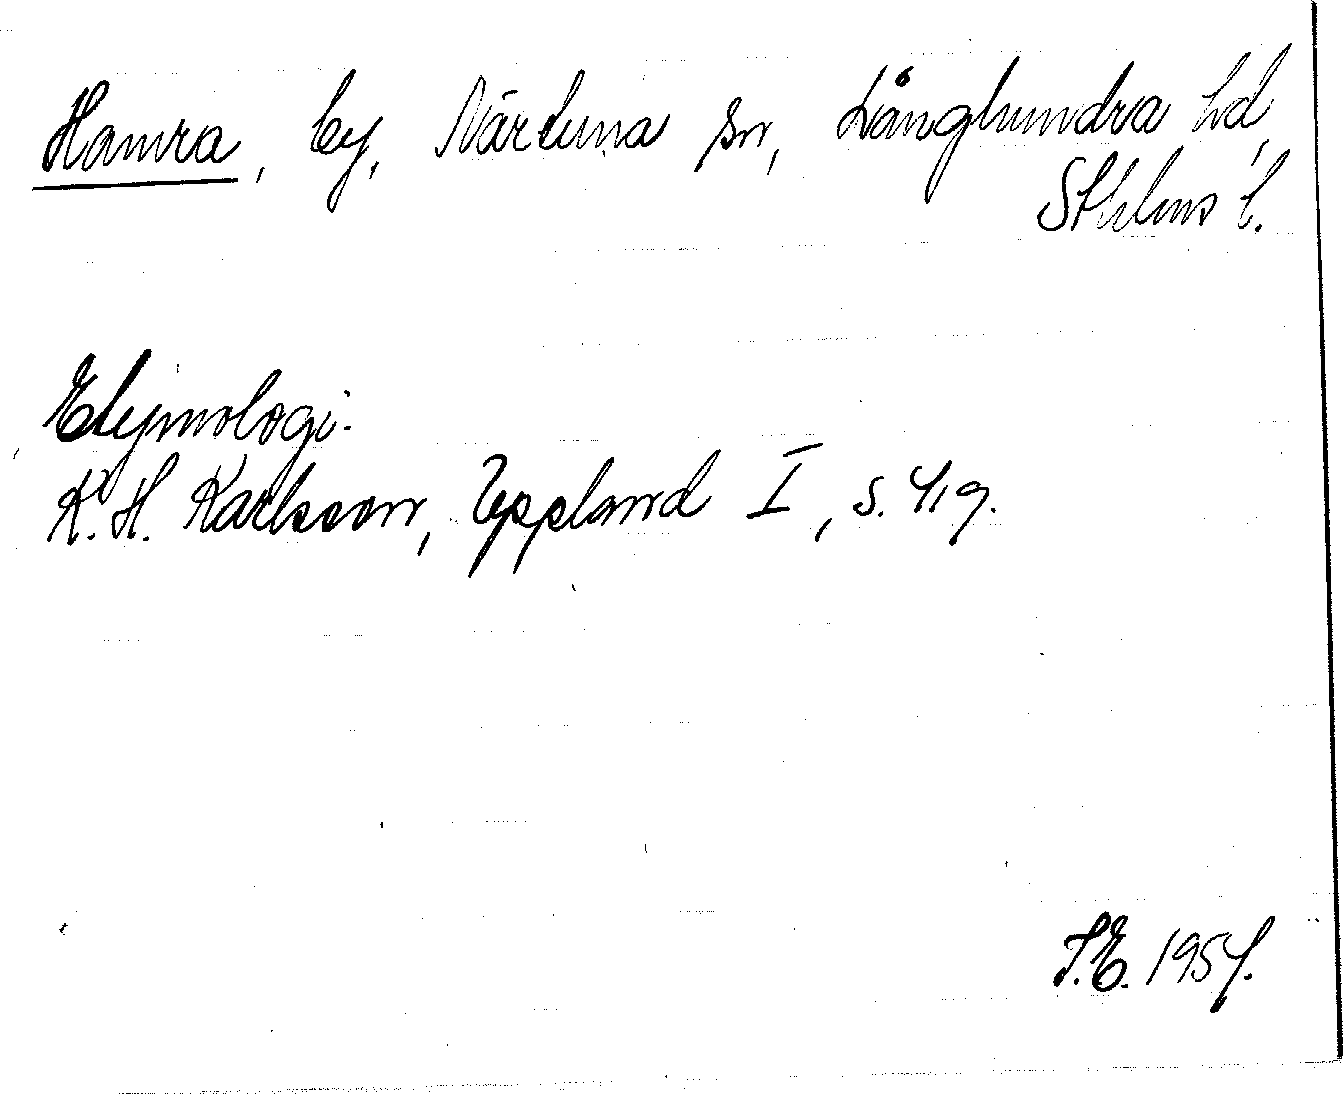 Hamra, by, Närtuna sn, Långhundra hd,
Sthlms l.
Etymologi.
K. H. Karlsson, Uppland I, s. 419.
S.E. 1954.